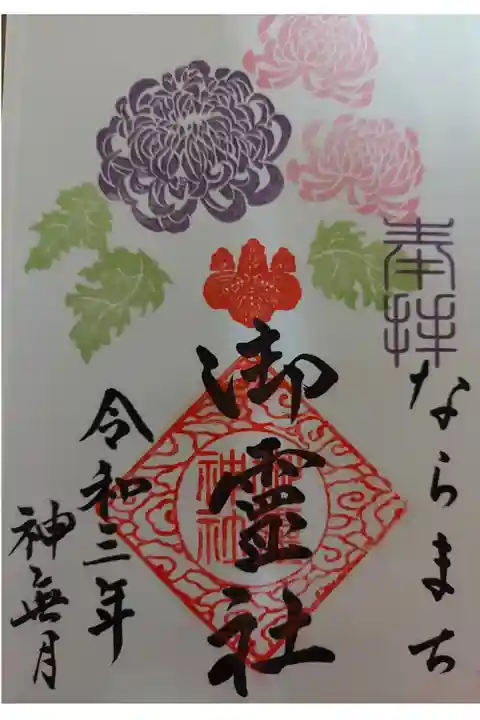 奉拝
ならまち
御霊社
神社
令和三年
神無月